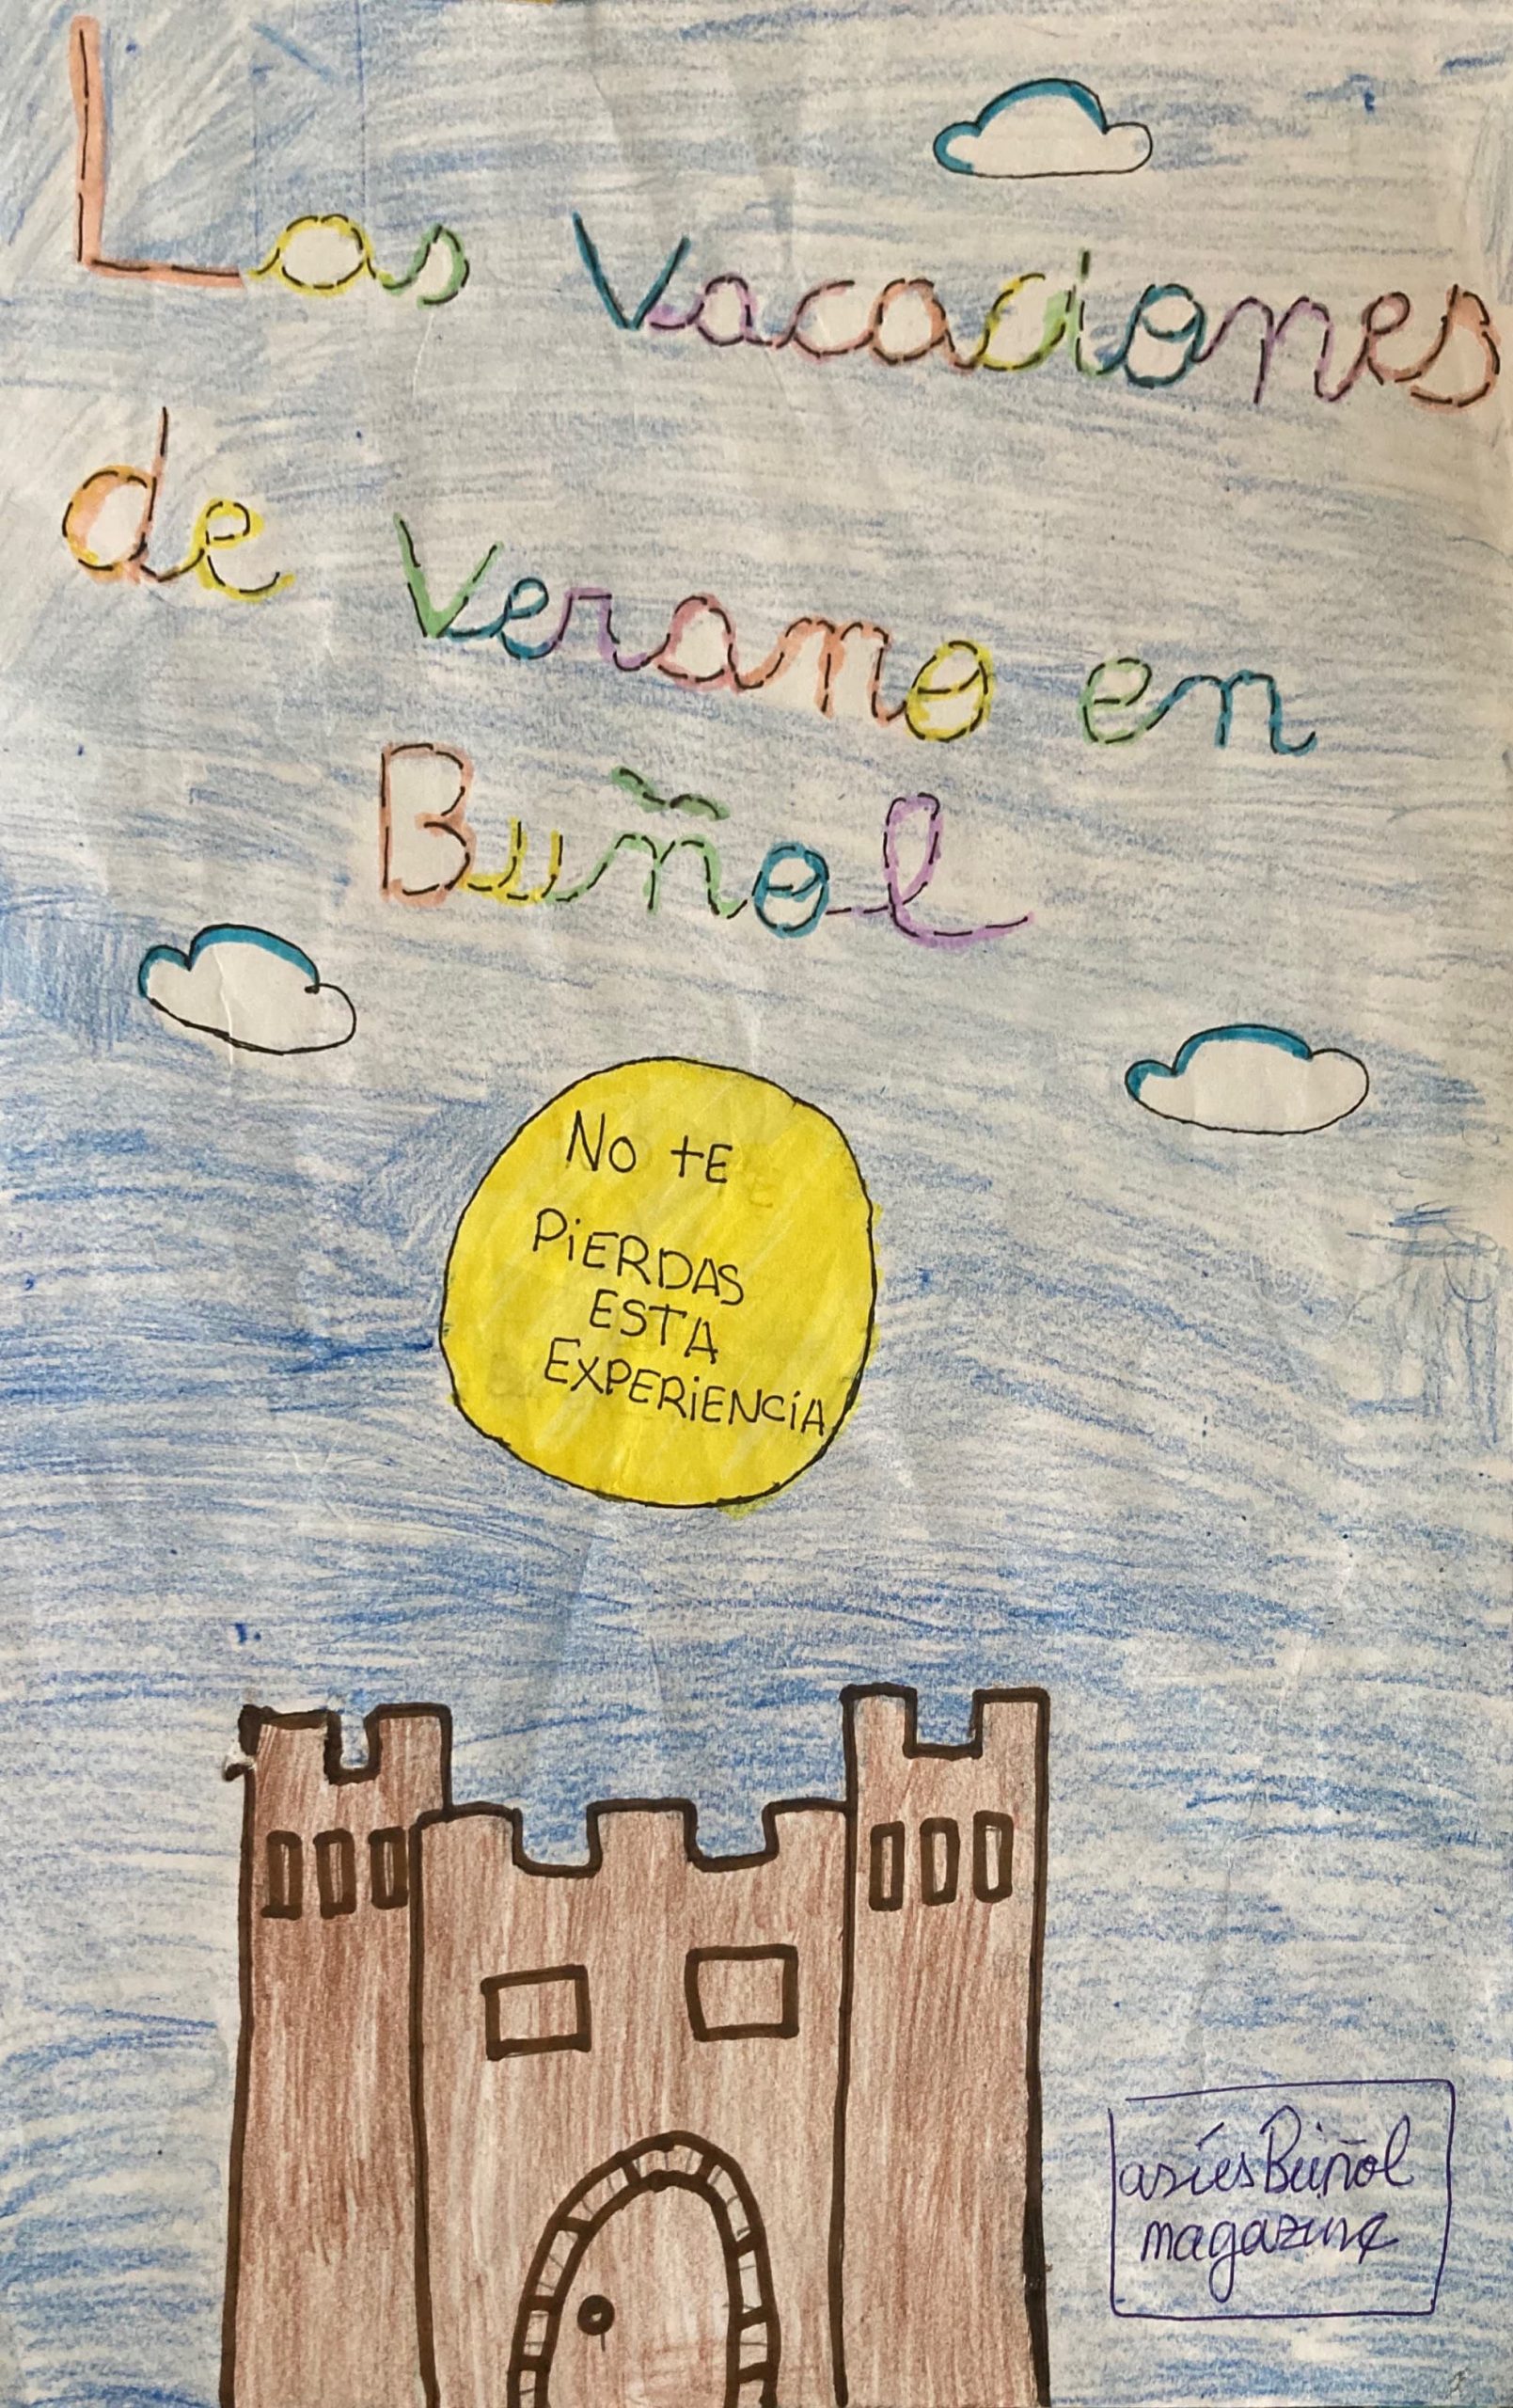 Las Vacaciones
de Verano en
Buñol
No tE
PiERDAS
ESTA
EXPERiENCiA
asíesBuñol
magazine